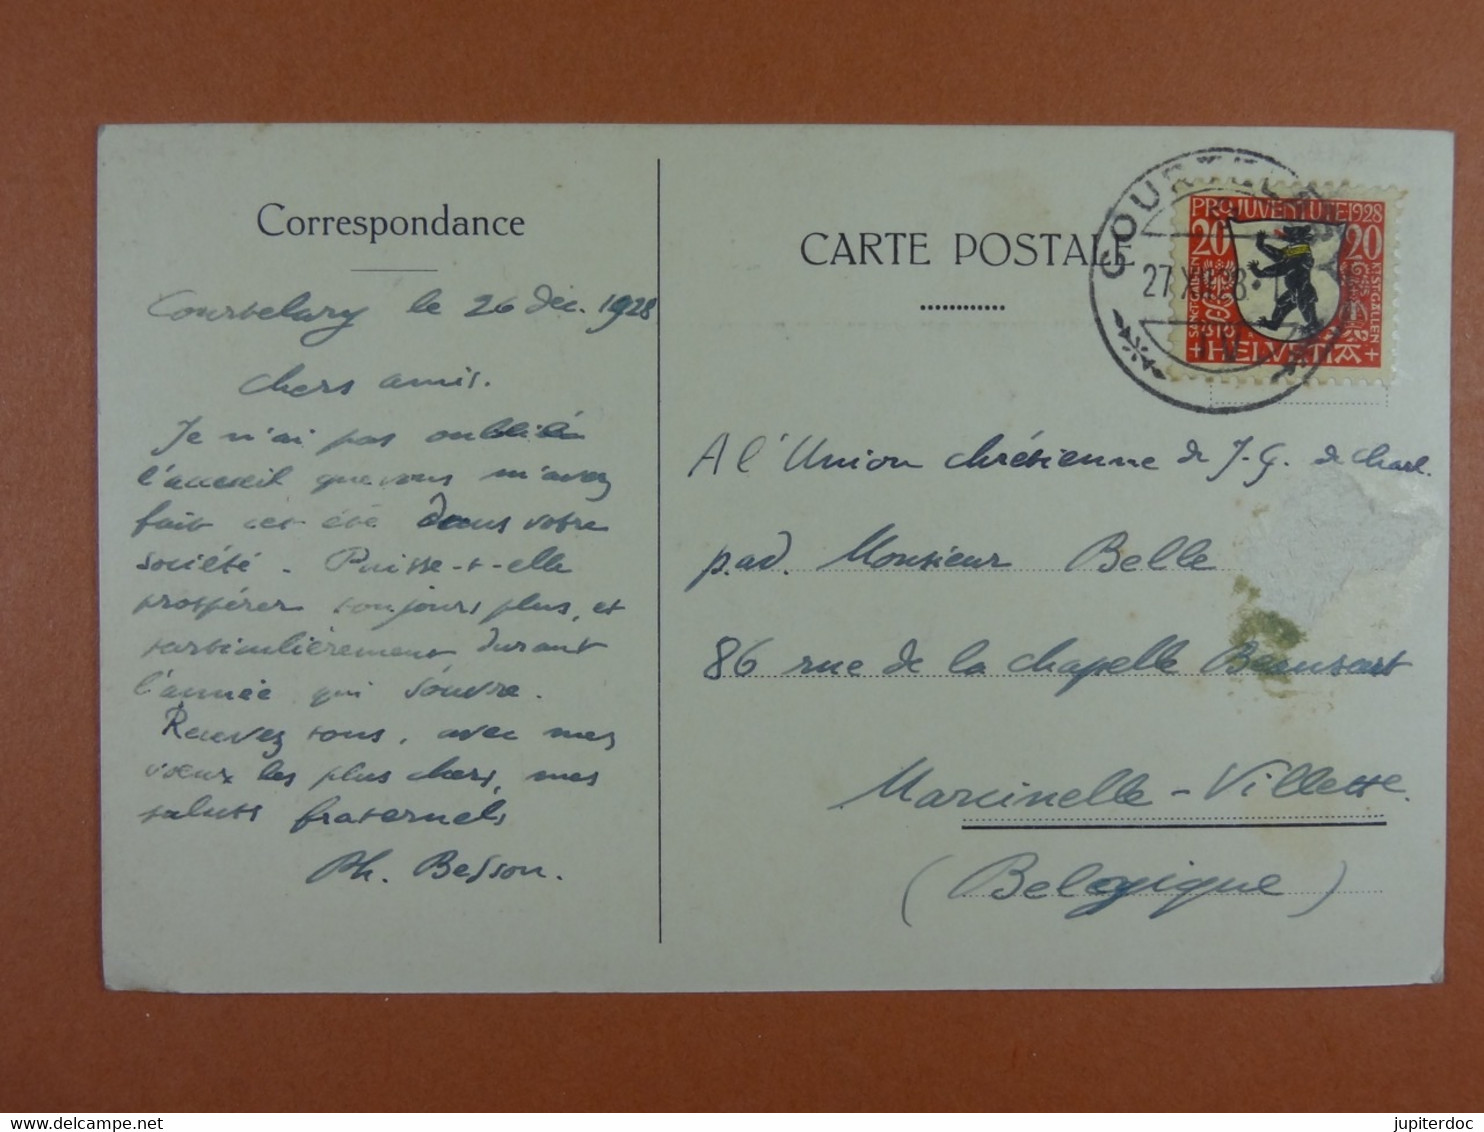 Correspondance
Courtelary le 26 déc. 1928
Chers amis.
Je n'ai pas oublié
l'accueil que vous m'avez
fait cet été dans votre
société. Puisse-t-elle
prospérer toujours plus, et
particulièrement durant
l'année qui s'ouvre.
Recevez tous, avec mes
vœux les plus chers, mes
saluts fraternels
Ph. Besson.
CARTE POSTALE
COURTELARY
27.XII.28
PRO JUVENTUTE 1928
20 20
KT. ST. GALLEN
HELVETIA
A l'Union chrétienne de J.G. de Charl.
p.ad. Monsieur Belle
86 rue de la chapelle Beausart
Marcinelle-Villette.
(Belgique)
delcampe.net
jupiterdoc